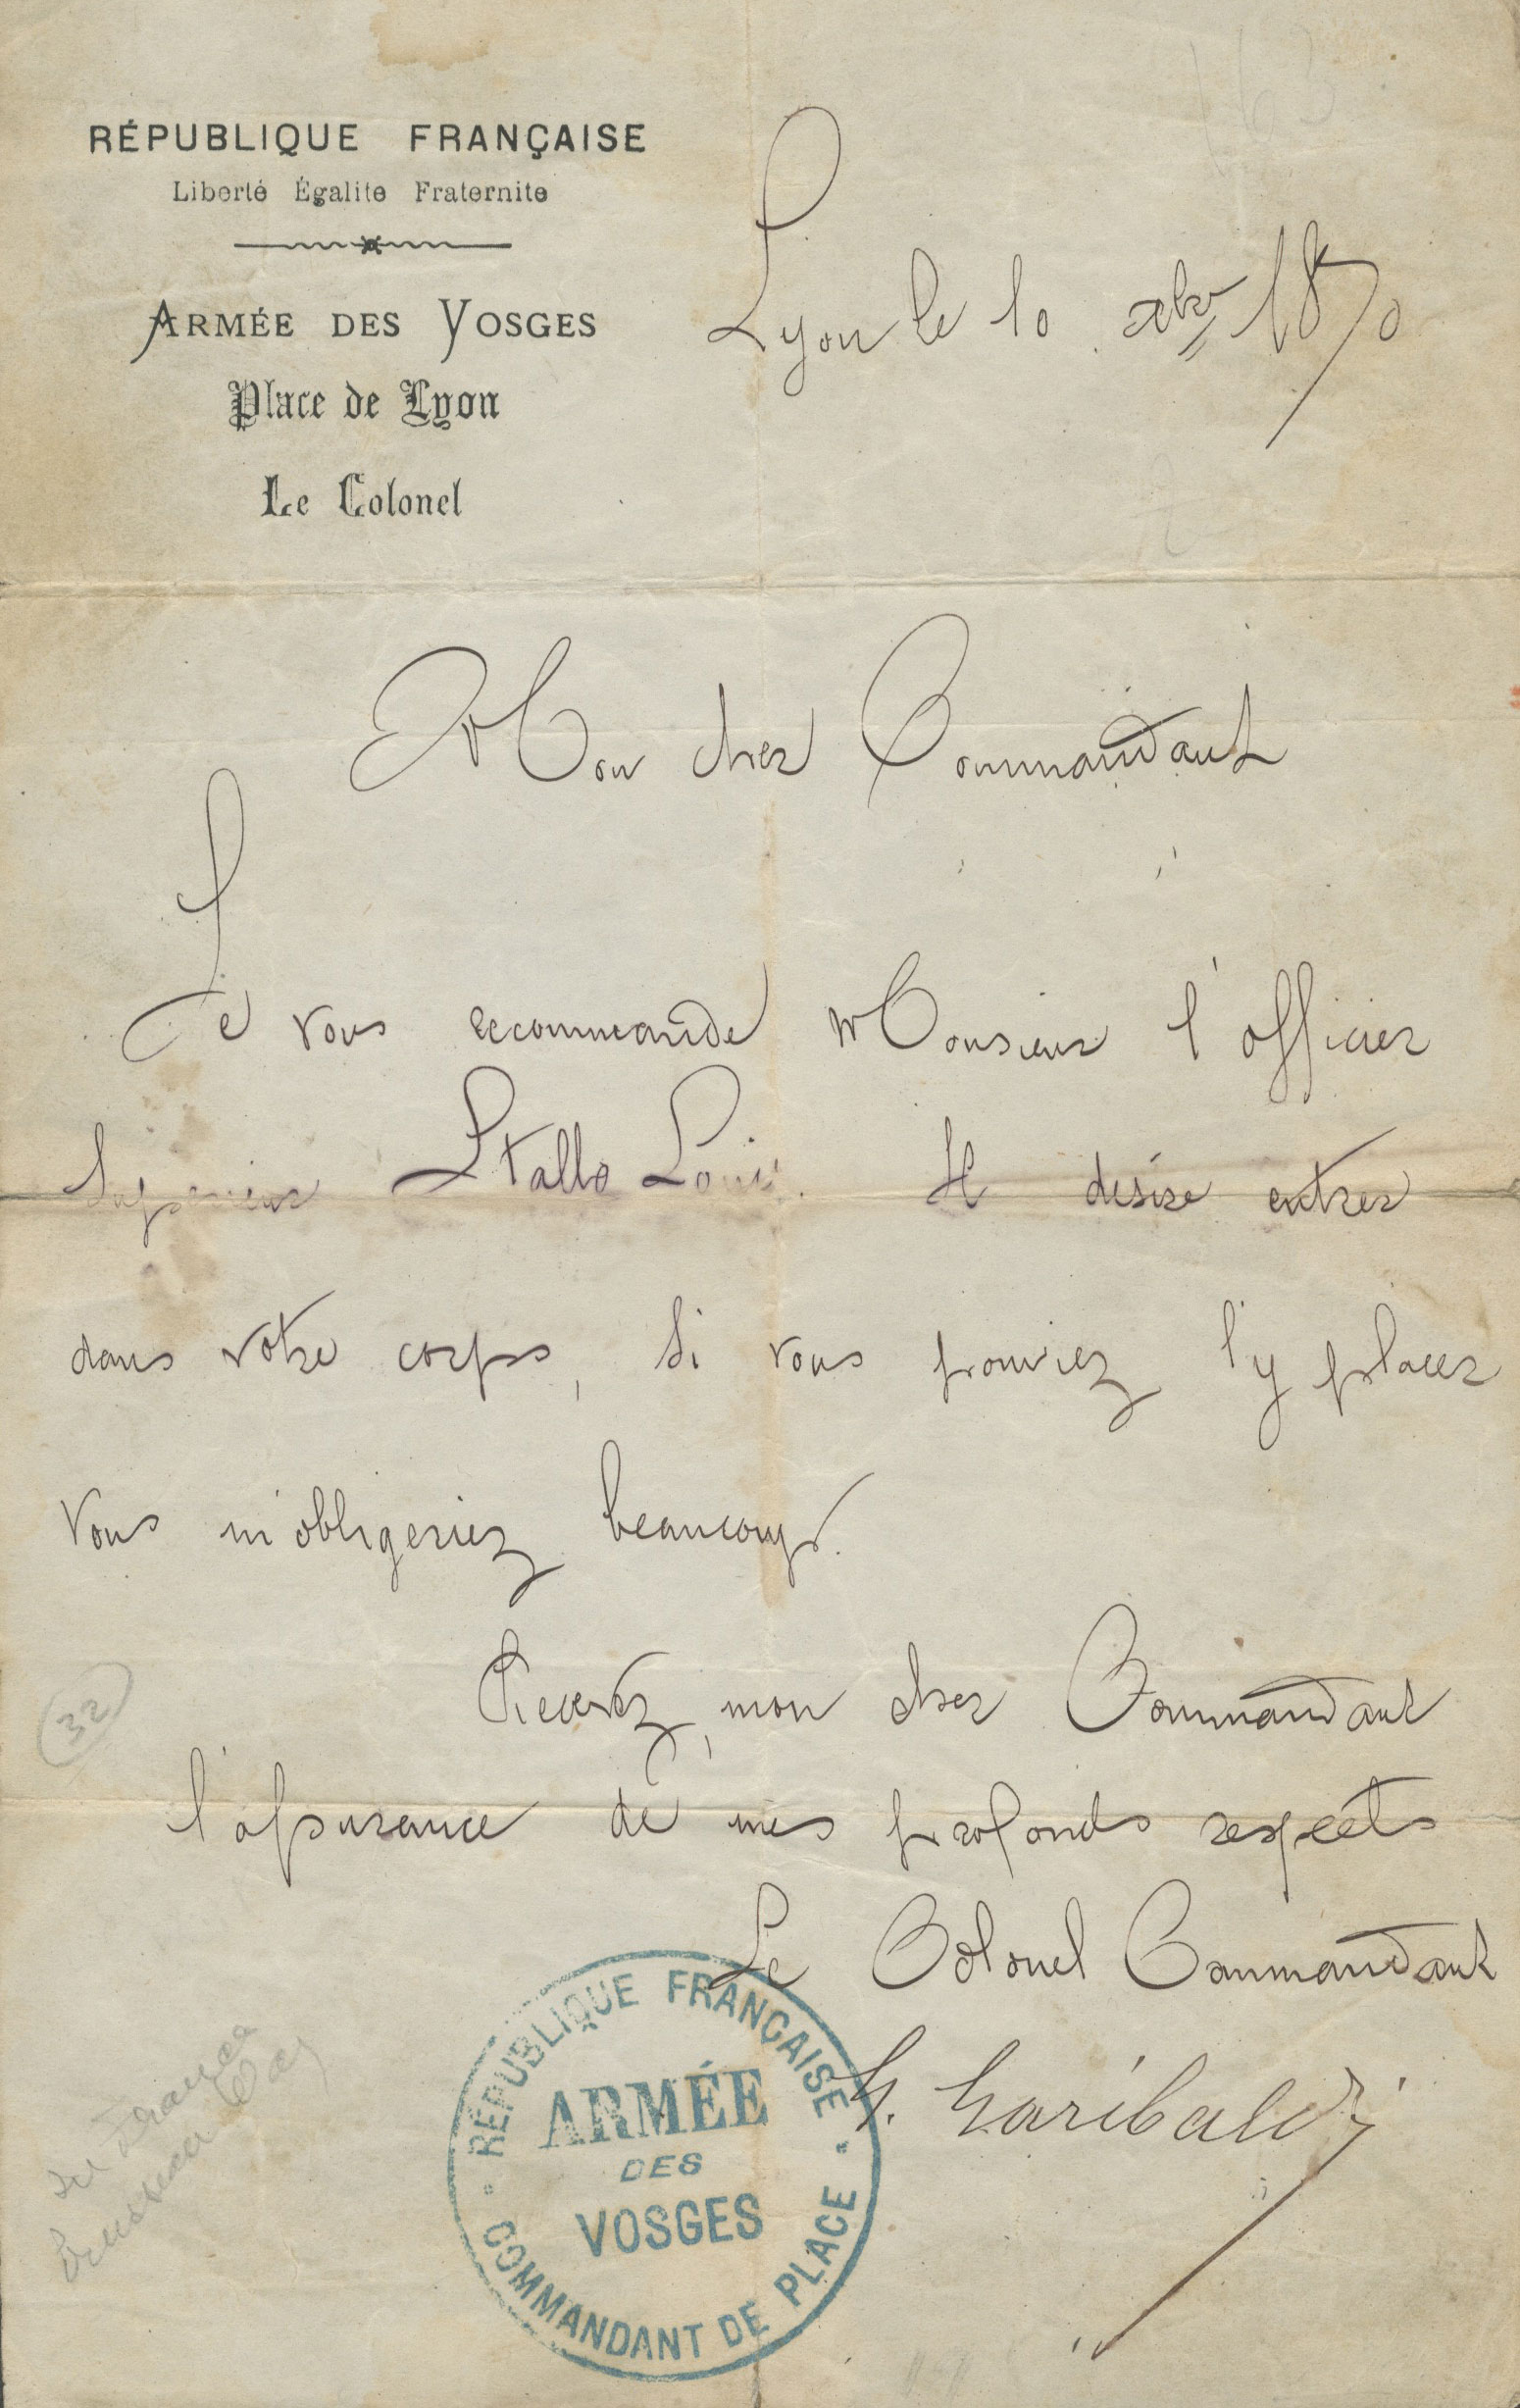 RÉPUBLIQUE FRANÇAISE
Liberté Égalite Fraternite
ARMÉE DES VOSGES
Place de Lyon
Le Colonel
Lyon le 10 xbre 1870
Mon cher Commandant
Je vous recommande Monsieur l'officier
Superieur Stallo Louis. Il désire entrer
dans votre corps, Si vous pouviez l'y placer
Vous m'obligeriez beaucoup.
Recevez, mon cher Commandant
l'assurance de mes profonds respects
Le Colonel Commandant
G. Garibaldi
RÉPUBLIQUE FRANÇAISE
ARMÉE
DES
VOSGES
COMMANDANT DE PLACE
32